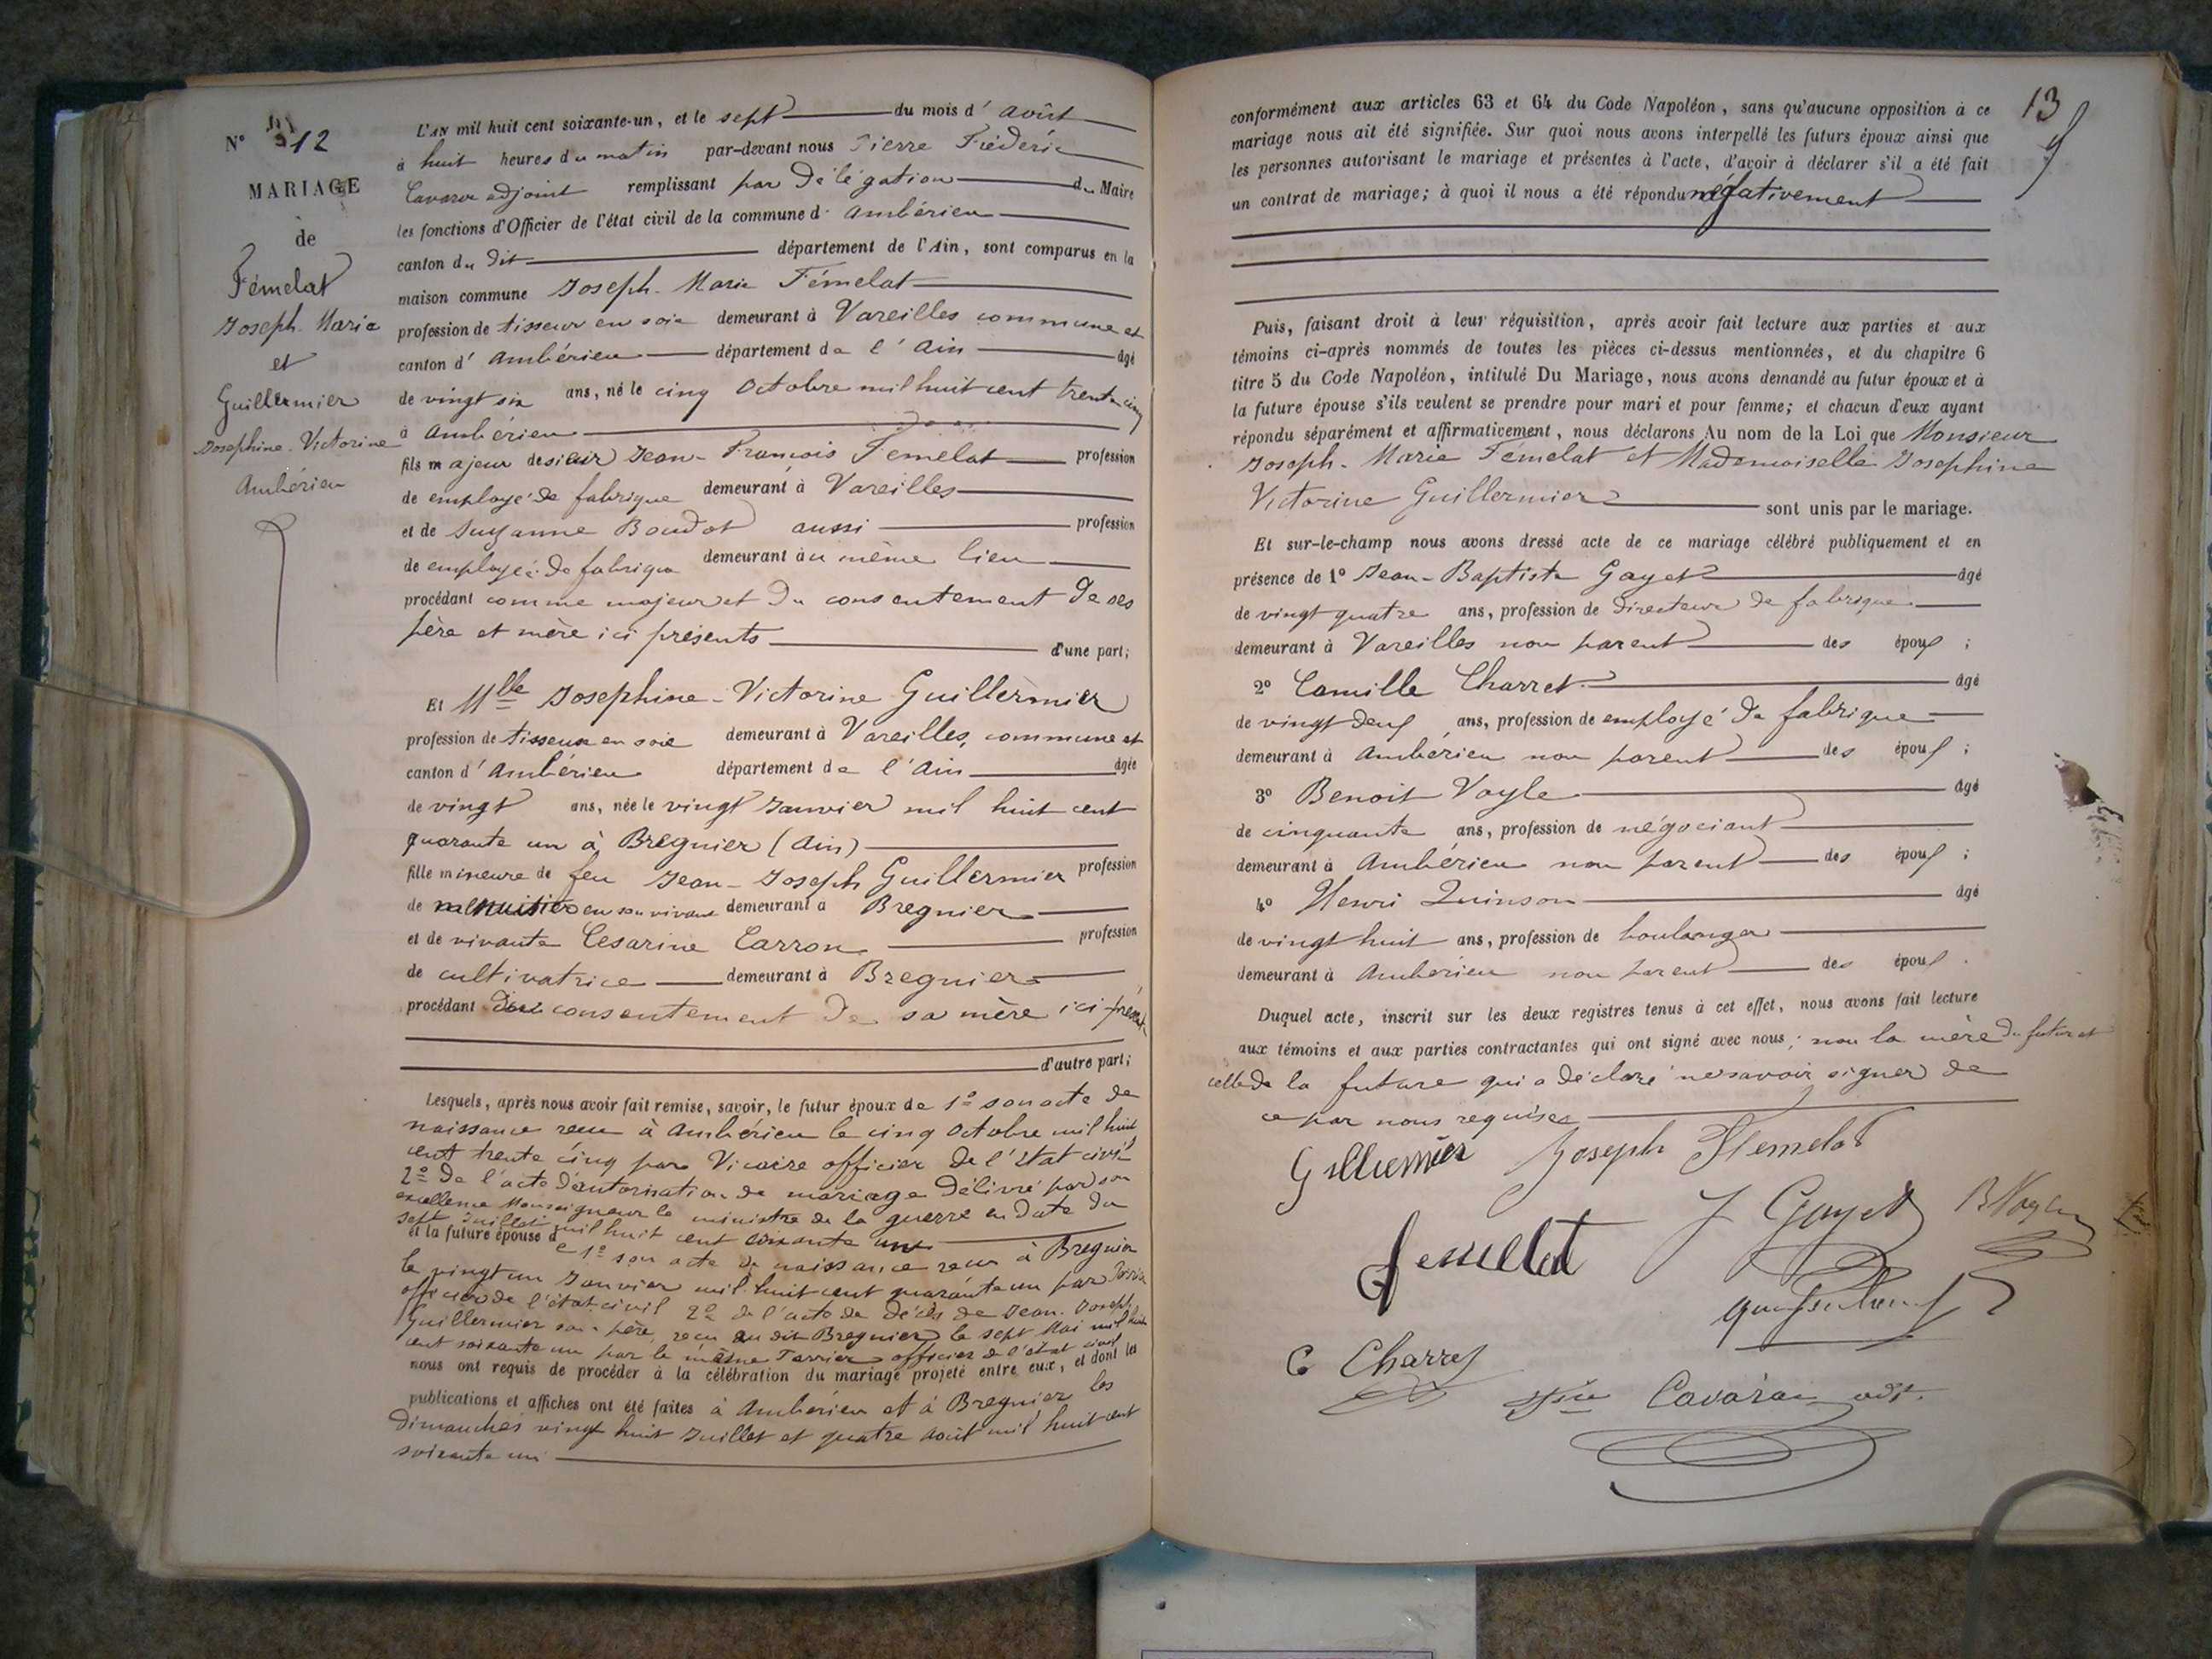 N° 12
MARIAGE
de
Fémelat
Joseph-Marie
et
Guillermier
Josephine-Victorine
Ambérieu
L'AN mil huit cent soixante-un, et le sept du mois d'août
à huit heures du matin par-devant nous Pierre Fréderic
Cavarou adjoint remplissant par délégation du Maire
les fonctions d'Officier de l'état civil de la commune d'Ambérieu
canton du dit département de l'Ain, sont comparus en la
maison commune Joseph-Marie Fémelat
profession de tisseur en soie demeurant à Vareilles commune et
canton d'Ambérieu département de l'Ain âgé
de vingt six ans, né le cinq Octobre mil huit cent trente cinq
à Ambérieu
fils majeur de sieur Jean-François Femelat profession
de employé de fabrique demeurant à Vareilles
et de Suzanne Boudot aussi profession
de employée de fabrique demeurant au même lieu
procédant comme majeur et du consentement de ses
père et mère ici présents d'une part;
Et Mlle Josephine-Victorine Guillermier
profession de tisseuse en soie demeurant à Vareilles, commune et
canton d'Ambérieu département de l'Ain âgée
de vingt ans, née le vingt Janvier mil huit cent
quarante un à Bregnier (Ain)
fille mineure de feu Jean-Joseph Guillermier profession
de menuisier en son vivant demeurant à Bregnier
et de vivante Cesarine Carron profession
de cultivatrice demeurant à Bregnier
procédant du consentement de sa mère ici présente
d'autre part;
Lesquels, après nous avoir fait remise, savoir, le futur époux de 1° son acte de
naissance reçu à Ambérieu le cinq Octobre mil huit
cent trente cinq par Vicaire officier de l'Etat civil
2° de l'acte d'autorisation de mariage délivré par son
excellence Monseigneur le ministre de la guerre en date du
sept Juillet mil huit cent soixante un
et la future épouse de 1° son acte de naissance reçu à Bregnier
le vingt un Janvier mil huit cent quarante un par
officier de l'état civil 2° de l'acte de décès de Jean-Joseph
Guillermier son père, reçu au dit Bregnier le sept Mai mil huit
cent soixante un par le même Terrier officier de l'état civil
nous ont requis de procéder à la célébration du mariage projeté entre eux, et dont les
publications et affiches ont été faites à Ambérieu et à Bregnier les
dimanches vingt huit Juillet et quatre Août mil huit cent
soixante un
13
conformément aux articles 63 et 64 du Code Napoléon, sans qu'aucune opposition à ce
mariage nous ait été signifiée. Sur quoi nous avons interpellé les futurs époux ainsi que
les personnes autorisant le mariage et présentes à l'acte, d'avoir à déclarer s'il a été fait
un contrat de mariage; à quoi il nous a été répondu négativement
Puis, faisant droit à leur réquisition, après avoir fait lecture aux parties et aux
témoins ci-après nommés de toutes les pièces ci-dessus mentionnées, et du chapitre 6
titre 5 du Code Napoléon, intitulé Du Mariage, nous avons demandé au futur époux et à
la future épouse s'ils veulent se prendre pour mari et pour femme; et chacun d'eux ayant
répondu séparément et affirmativement, nous déclarons Au nom de la Loi que Monsieur
Joseph-Marie Fémelat et Mademoiselle Josephine
Victorine Guillermier sont unis par le mariage.
Et sur-le-champ nous avons dressé acte de ce mariage célébré publiquement et en
présence de 1° Jean-Baptiste Gayet âgé
de vingt quatre ans, profession de directeur de fabrique
demeurant à Vareilles non parent des époux ;
2° Camille Charret âgé
de vingt deux ans, profession de employé de fabrique
demeurant à Ambérieu non parent des époux ;
3° Benoit Vogle âgé
de cinquante ans, profession de négociant
demeurant à Ambérieu non parent des époux ;
4° Henri Quinson âgé
de vingt huit ans, profession de boulanger
demeurant à Ambérieu non parent des époux .
Duquel acte, inscrit sur les deux registres tenus à cet effet, nous avons fait lecture
aux témoins et aux parties contractantes qui ont signé avec nous; non la mère du futur et
celle de la future qui a déclaré ne savoir signer de
ce par nous requises
Gilliermier Joseph Femelat
femelat J Gayet B Vogle
C Charret
Cavarou adj.